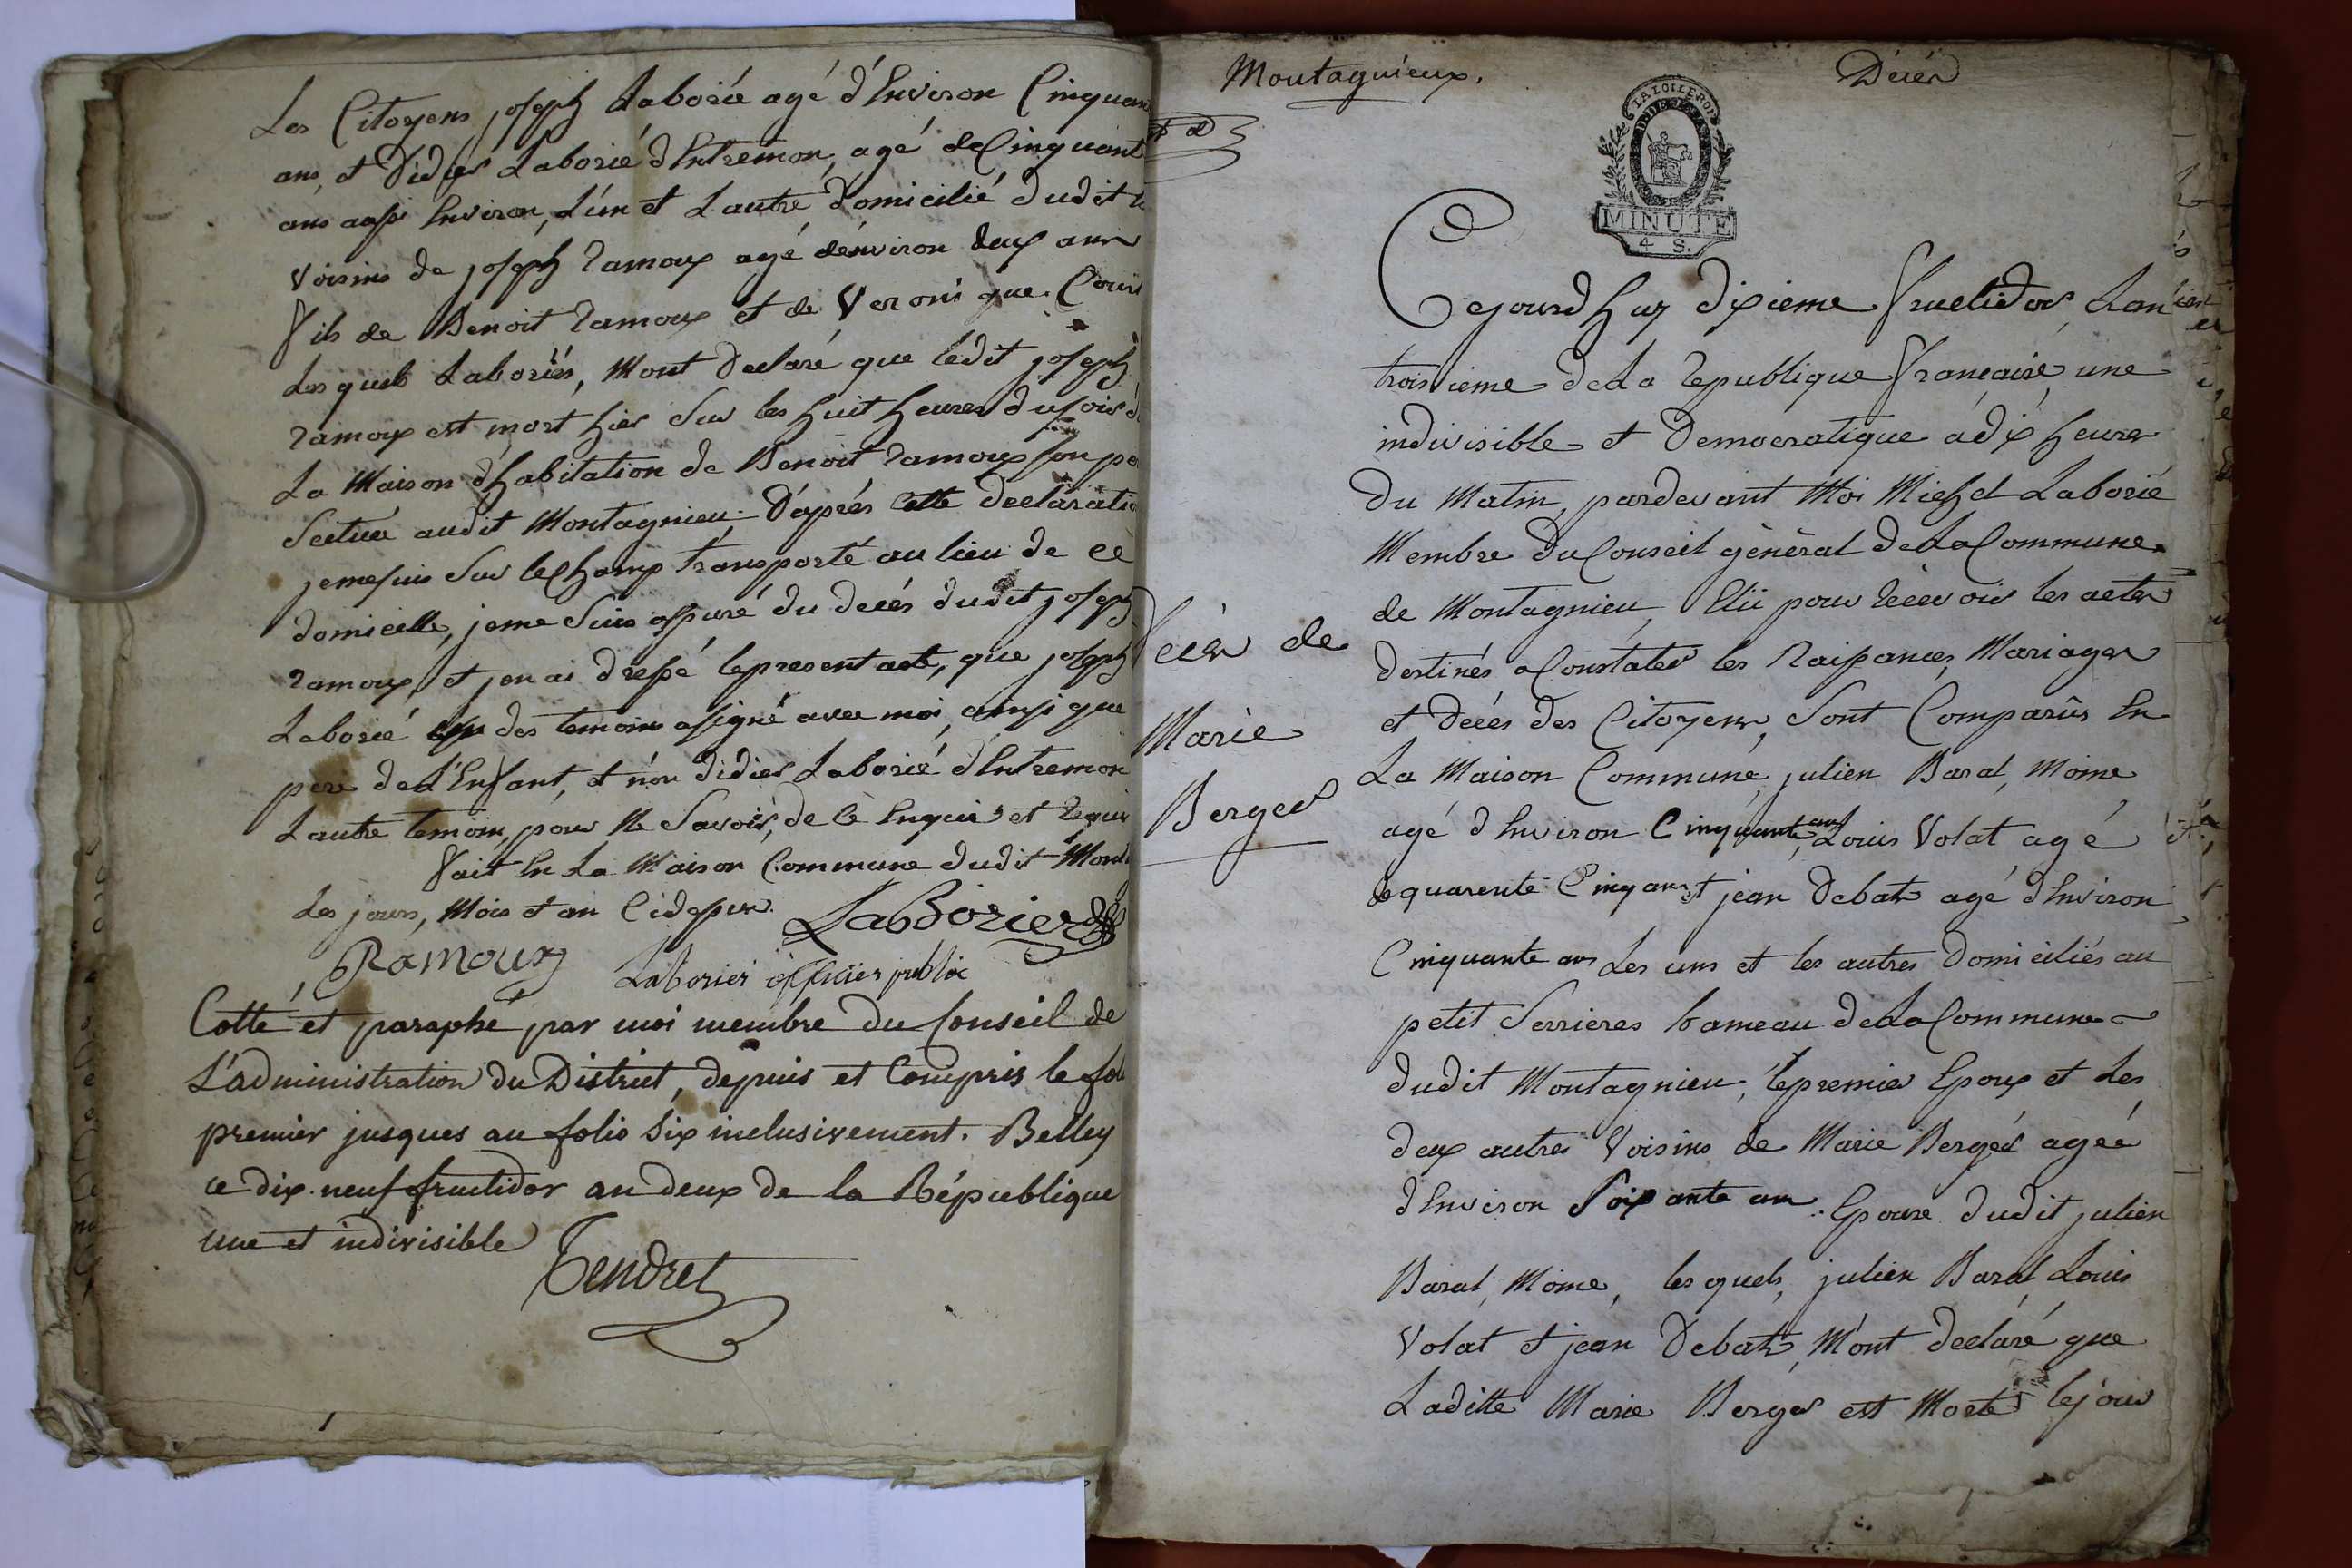 Les Citoyens joseph Laborié agé d'Environ Cinquan
ans, et Didier Laborié d'Entremon, agé de Cinquante
ans aussi Environ, L'un et Lautre domicilié dudit
Voisins de joseph Ramoux agé denviron deux ans
fils de Benoit Ramoux et de Veronique
Les quels Laboriés, Mont Declaré que ledit joseph
Ramoux est mort hier Sur les huit heures du soir
La Maison d'habitation de Benoit Ramoux son pe
Scitué audit Montagnieu. D'aprés Cette declaratio
jemesuis Sur lechamp transporté au lieu de ce
domicille, jeme Suis assuré du decés dudit joseph
Ramoux, et jen ai dressé lepresent acte, que joseph
Laborié des temoins asigné avec moi, ainsi que
pere del'Enfant, et non didier Laborié d'Entremon
Lautre temoin, pour Ne Savoir, de ce Enquis et Requis
fait En La Maison Commune dudit Mont
Les jours, Mois et an Cidessus. LaBorier
Ramoux Laborier officier public
Cotté et paraphé par moi membre du Conseil de
L'administration du District, depuis et Compris le fol
premier jusques au folio Six inclusivement. Belley
ce dix-neuf fructidor an deux de la République
une et indivisible
Tendret
1
Montagnieux.
Décés
LA LOI LE RO
MINUTE
4 S.
Decés de
Marie
Berger
Cejourdhuy dixieme fructidor Lan
troisieme deLa Republique francaise, une
indivisible et Democratique à dix heures
Du Matin, pardevant Moi Michel Laborié
Membre du Conseil général deLa Commune
de Montagnieu, Elû pour Recevoir les actes
destinés a Constater les Naissances, Mariages
et decés des Citoyens, Sont Comparûs En
La Maison Commune, julien Baral, Moine
agé d'Environ Cinquante ans, Louis Volat agé
de quarente Cinq ans et jean Debat agé d'Environ
Cinquante ans Les uns et les autres Domiciliés au
petit Serrieres hameau deLa Commune
dudit Montagnieu, lepremier Epoux et Les
deux autres Voisins de Marie Berger agée
d'Environ Soixante ans. Epouse dudit julien
Baral, Moine, les quels, julien Baral, Louis
Volat et jean Debat, M'ont declaré que
Laditte Marie Berger est Morte lejour